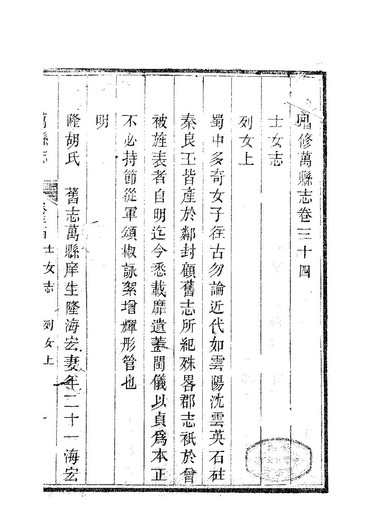 增修萬縣志卷三十四
士女志
列女上
蜀中多奇女子往古勿論近代如雲陽沈雲英石砫
秦良玉皆產於鄰封顧舊志所紀殊畧郡志祇於曾
被旌表者自明迄今悉載靡遺蓋閨儀以貞爲本正
不必持節從軍頌椒詠絮增輝彤管也
明
隆胡氏 舊志萬縣庠生隆海宏妻年二十一海宏
士女志 列女上